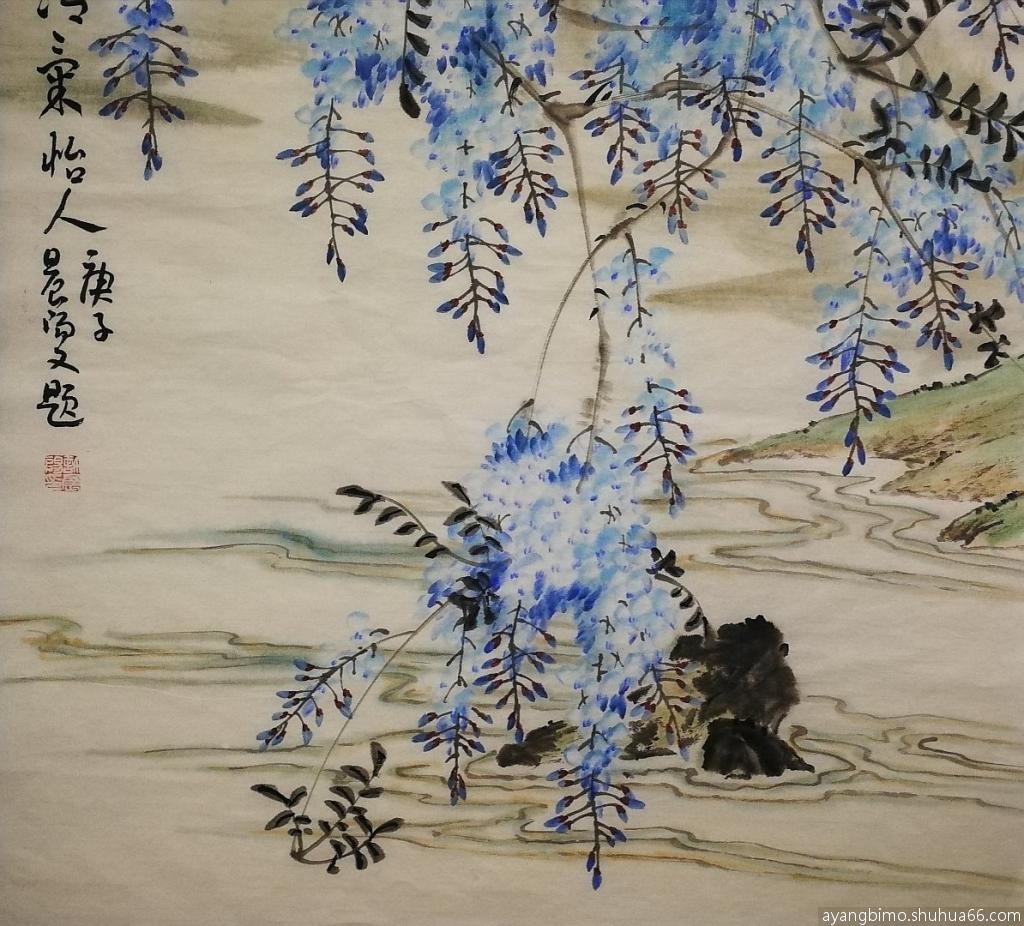 氣怡人
庚子
晨阳又题
ayangbimo.shuhua66.com